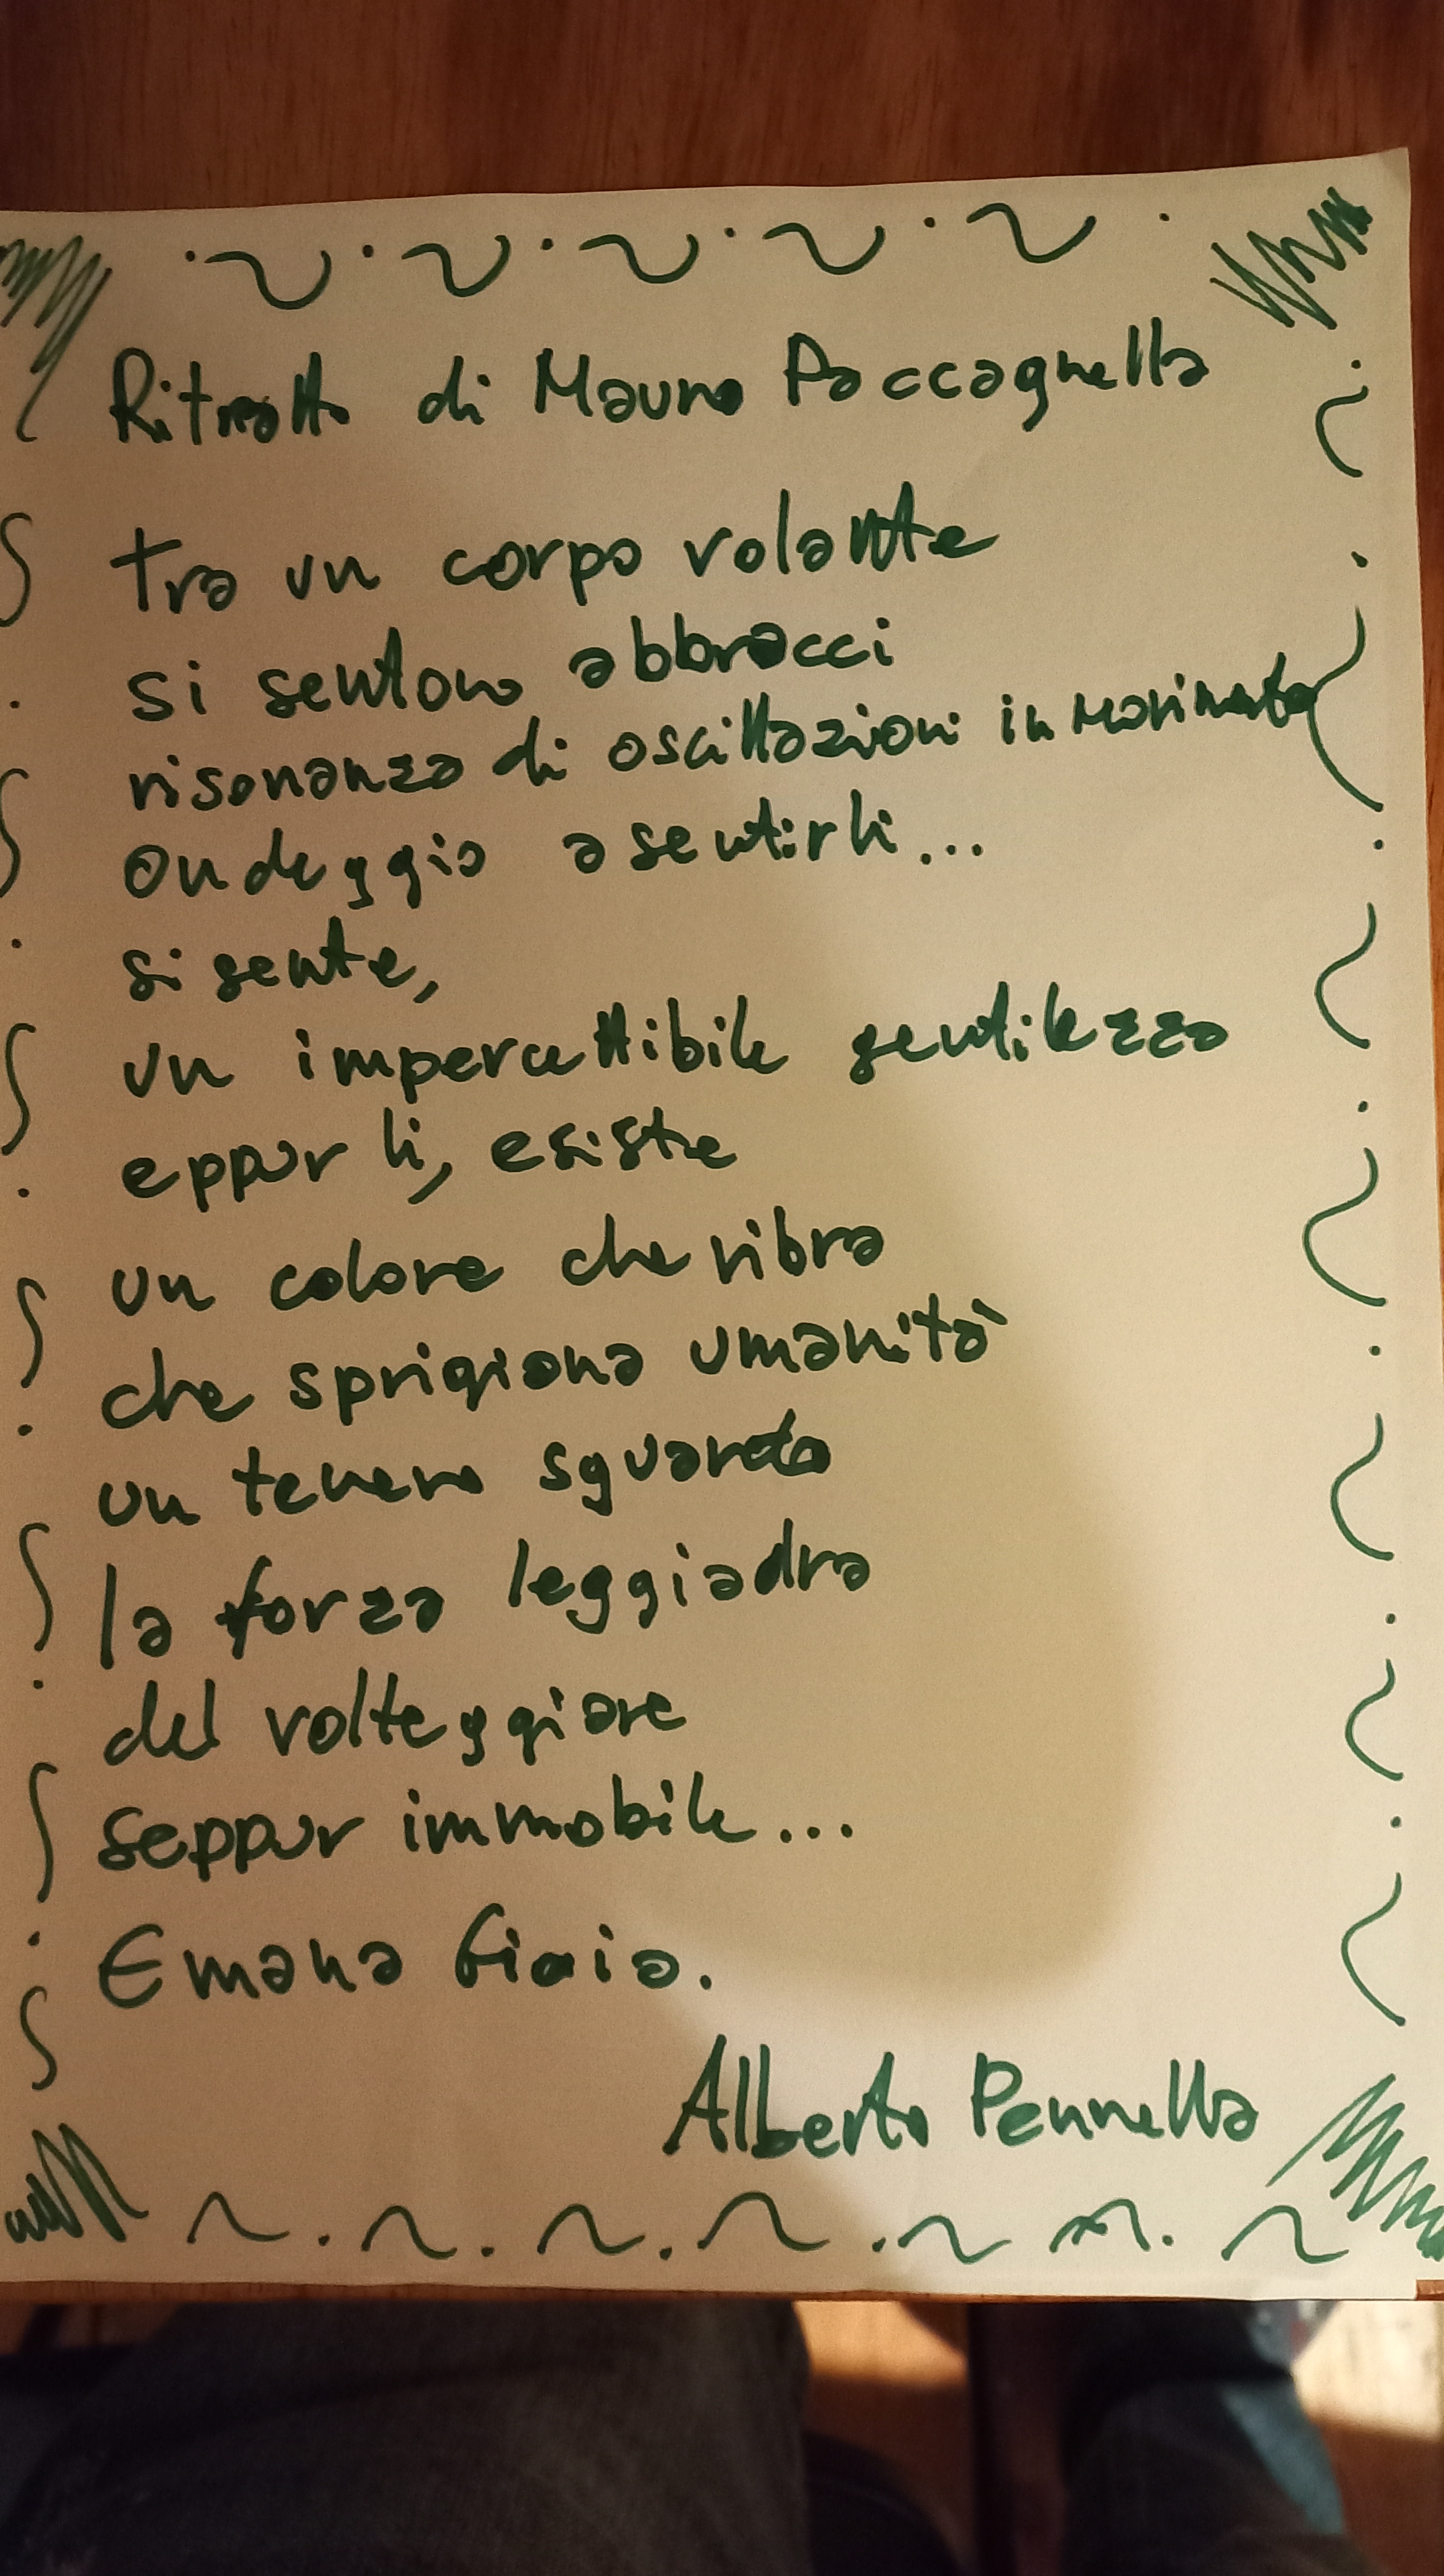 Ritratto di Mauro Paccagnella
tra un corpo volante
si sentono abbracci
risonanza di oscillazioni in movimento
ondeggio a sentirli...
si sente,
un impercettibile gentilezza
eppur lì, esiste
un colore che vibra
che sprigiona umanità
un tenero sguardo
la forza leggiadra
del volteggiare
seppur immobile...
Emana Gioia.
Alberto Pennella